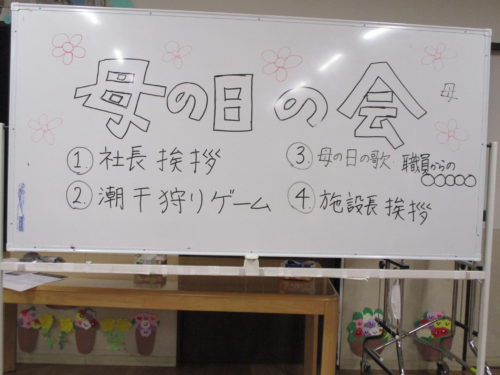 母の日の会
母
① 社長挨拶
② 潮干狩りゲーム
③ 母の日の歌 職員からの
○○○○○
④ 施設長挨拶